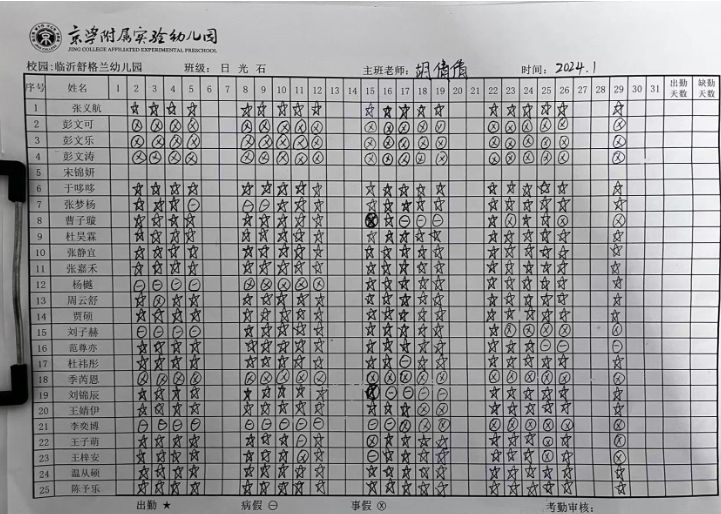 京学附属实验幼儿园
JING COLLEGE AFFILIATED EXPERIMENTAL PRESCHOOL
校园:临沂舒格兰幼儿园 班级: 日光石 主班老师: 胡倩倩 时间: 2024.1
序号 姓名 1 2 3 4 5 6 7 8 9 10 11 12 13 14 15 16 17 18 19 20 21 22 23 24 25 26 27 28 29 30 31 出勤天数 缺勤天数
1 张义航 ☆ ☆ ☆ ☆ ☆ ☆ ☆ ☆ ☆ ☆ ☆ ☆ ☆ ☆ ☆ ☆ ☆ ☆ ☆ ☆
2 彭文可 ⊗ ⊗ ⊗ ⊗ ⊗ ⊗ ⊗ ⊗ ⊗ ⊗ ⊗ ⊗ ⊗ ⊗ ⊗ ⊗ ⊗ ⊗ ⊗ ⊗
3 彭文乐 ⊗ ⊗ ⊗ ⊗ ⊗ ⊗ ⊗ ⊗ ⊗ ⊗ ⊗ ⊗ ⊗ ⊗ ⊗ ⊗ ⊗ ⊗ ⊗ ⊗
4 彭文涛 ⊗ ⊗ ⊗ ⊗ ⊗ ⊗ ⊗ ⊗ ⊗ ⊗ ⊗ ⊗ ⊗ ⊗ ⊗ ⊗ ⊗ ⊗ ⊗ ⊗
5 宋锦妍
6 于哆哆
7 张梦杨
8 曹子璇
9 杜昊霖
10 张静宜
11 张嘉禾
12 杨樾
13 周云舒
14 贾硕
15 刘子赫
16 范尊亦
17 杜祎彤
18 季芮恩
19 刘锦辰
20 王婧伊
21 李奕博
22 王子萌
23 王梓安
24 温从硕
25 陈予乐
出勤 ★ 病假 ⊖ 事假 ⊗ 考勤审核: